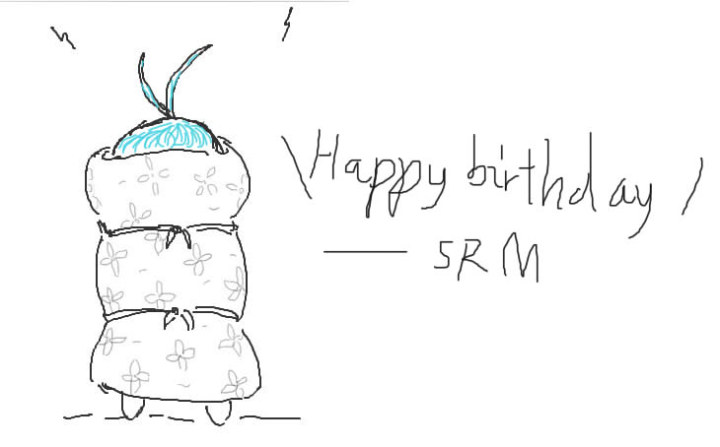 \Happy birthday/
—— SRM